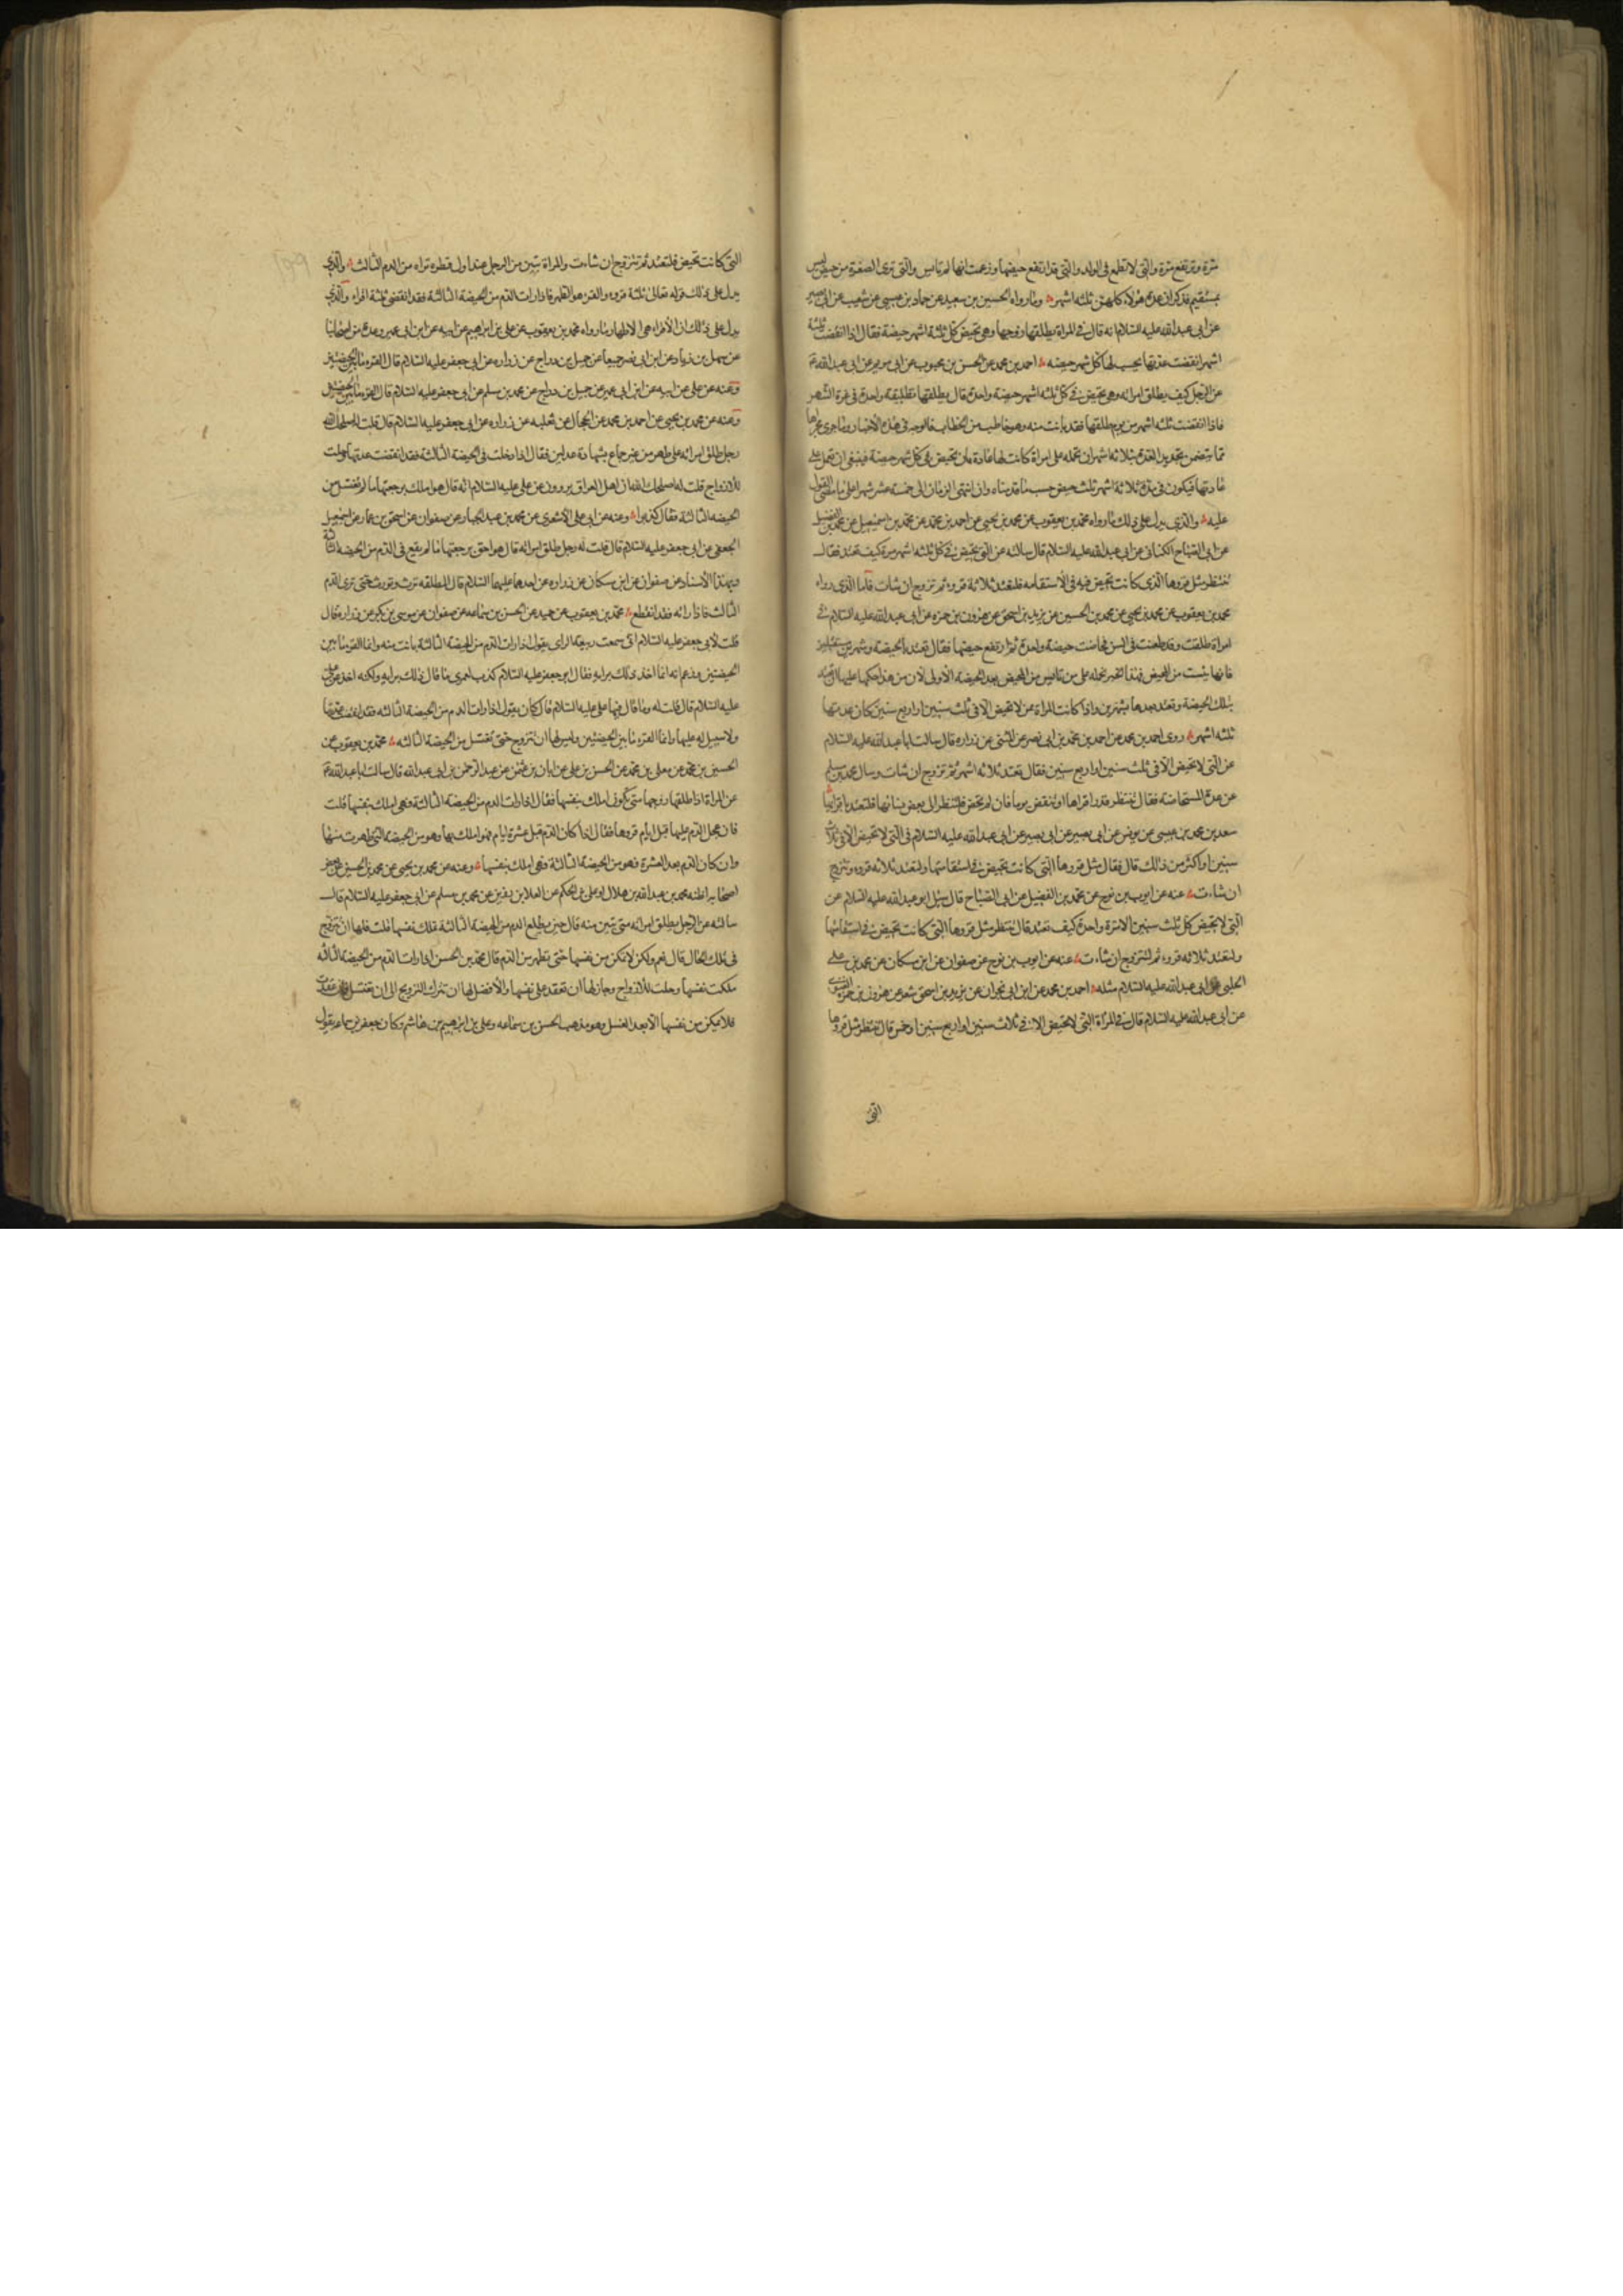 مرة وترتفع مرة والتي لا تطمع في الولد والتي قد ارتفع حيضها وزعمت انها لم تايس والتي ترى الصفرة من حيض ليس
بمستقيم فذكر ان عدة هؤلاء كلهن ثلثة اشهر وما رواه الحسين بن سعيد عن حماد بن عيسى عن شعيب عن ابي بصير
عن ابي عبد الله عليه السلام انه قال في المراة يطلقها زوجها وهي تحيض كل ثلثة اشهر حيضة فقال اذا انقضت ثلثة
اشهر انقضت عدتها يحسب لها كل شهر حيضه احمد بن محمد عن الحسن بن محبوب عن ابي مريم عن ابي عبد الله ع
عن الرجل كيف يطلق امراته وهي تحيض في كل ثلثه اشهر حيضة واحدة قال يطلقها تطليقة واحدة في غرة الشهر
فاذا انقضت ثلثه اشهر من يوم طلقها فقد بانت منه وهو خاطب من الخطاب فالوجه في هذه الاخبار وما جرى مجراها
مما يتضمن تحديد العدة بثلاثه اشهر ان نحمله على امراة كانت لها عادة بان تحيض في كل شهر حيضة فينبغي ان تعمل على
عادتها فيكون في مدة ثلاثة اشهر ثلث حيض حسب ما قدمناه وان انتهى الزمان الى خمسة عشر شهرا على ما مضى القول
عليه والذي يدل على ذلك ما رواه محمد بن يعقوب عن محمد بن يحيى عن احمد بن محمد عن محمد بن اسمعيل عن محمد بن الفضيل
عن ابي الصباح الكناني عن ابي عبد الله عليه السلام قال سالته عن التي تحيض في كل ثلثه اشهر مرة كيف تعتد فقال
تنتظر مثل قروها الذي كانت تحيض فيه في الاستقامه فلتعتد ثلاثة قروء ثم تزوج ان شات فاما الذي رواه
محمد بن يعقوب عن محمد بن يحيى عن محمد بن الحسين عن يزيد بن اسحق عن هرون بن حمزه عن ابي عبد الله عليه السلام في
امراة طلقت وقد طعنت في السن فحاضت حيضة واحدة ثم ارتفع حيضها فقال تعتد بالحيضة وشهرين مستقبلين
فانها يئست من المحيض فهذا الخبر نحمله على من تايس من المحيض بعد الحيضة الاولى لان من هذا حكمها عليها ان تعتد
بتلك الحيضة وتعتد بعدها بشهرين واذا كانت المراة ممن لا تحيض الا في ثلث سنين او اربع سنين كان عدتها
ثلثه اشهر روى احمد بن محمد عن احمد بن محمد بن ابي نصر عن المثنى عن زراره قال سالت ابا عبد الله عليه السلام
عن التي لا تحيض الا في ثلث سنين او اربع سنين فقال تعتد ثلاثه اشهر ثم تزوج ان شات وسال محمد بن مسلم
عن عدة المستحاضة فقال تنتظر قدر اقراها او تنقص يوما فان لم تحض فلتنظر الى بعض نسائها فلتعتد باقرائها
سعد بن محمد بن عيسى عن يونس عن ابي بصير عن ابي عبد الله عليه السلام في التي لا تحيض الا في ثلاث
سنين او اكثر من ذلك قال فقال مثل قروها التي كانت تحيض في استقامتها ولتعتد ثلاثه قروء وتزوج
ان شاءت عنه عن ايوب بن نوح عن محمد بن الفضيل عن ابي الصباح قال سئل ابو عبد الله عليه السلام عن
التي لا تحيض كل ثلث سنين الا مرة واحدة كيف تعتد قال تنتظر مثل قروها التي كانت تحيض في استقامتها
ولتعتد ثلاثه قروء ثم لتتزوج ان شاءت عنه عن ايوب بن نوح عن صفوان عن ابن مسكان عن محمد بن علي
الحلبي عن ابي عبد الله عليه السلام مثله احمد بن محمد عن ابن ابي نجران عن يزيد بن اسحق شعر عن هرون بن حمزه الغنوي
عن ابي عبد الله عليه السلام قال في المراة التي لا تحيض الا في ثلاث سنين او اربع سنين او خمس قال تنتظر مثل قروها
التي
التي كانت تحيض فلتعتد ثم تتزوج ان شاءت والمراة تبين من الرجل عند اول قطره تراه من الدم الثالث والذي
يدل على ذلك قوله تعالى ثلثة قروء والقرء هو الطهر فاذا رات الدم من الحيضة الثالثة فقد انقضى ثلثة اقراء والذي
يدل على ذلك ان الاقراء هي الاطهار ما رواه محمد بن يعقوب عن علي بن ابراهيم عن ابيه عن ابن ابي عمير وعدة من اصحابنا
عن سهل بن زياد عن ابن ابي نصر جميعا عن جميل بن دراج عن زراره عن ابي جعفر عليه السلام قال القرء ما بين الحيضتين
وعنه عن علي عن ابيه عن ابن ابي عمير عن جميل بن دراج عن محمد بن مسلم عن ابي جعفر عليه السلام قال القرء ما بين الحيضتين
وعنه عن محمد بن يحيى عن احمد بن محمد عن الحجال عن ثعلبه عن زراره عن ابي جعفر عليه السلام قال قلت اصلحك الله
رجل طلق امراته على طهر من غير جماع بشهادة عدلين فقال اذا دخلت في الحيضة الثالثة فقد انقضت عدتها وحلت
للازواج قلت له اصلحك الله ان اهل العراق يروون عن علي عليه السلام انه قال هو املك برجعتها ما لم تغتسل من
الحيضه الثالثة فقال كذبوا وعنه عن ابي علي الاشعري عن محمد بن عبد الجبار عن صفوان عن اسحق بن عمار عن اسمعيل
الجعفي عن ابي جعفر عليه السلام قال قلت له رجل طلق امراته قال هو احق برجعتها ما لم يقع في الدم من الحيضة الثالثة
وبهذا الاسناد عن صفوان عن ابن مسكان عن زراره عن احدهما عليهما السلام قال المطلقه ترث وتورث حتى ترى الدم
الثالث فاذا راته فقد انقطع محمد بن يعقوب عن حميد عن الحسن بن سماعه عن صفوان عن موسى بن بكر عن زراره قال
قلت لابي جعفر عليه السلام اني سمعت ربيعة الراي يقول اذا رات الدم من الحيضة الثالثة بانت منه وانما القرء ما بين
الحيضتين وزعم انه انما اخذ ذلك برايه فقال ابو جعفر عليه السلام كذب لعمري ما قال ذلك برايه ولكنه اخذه عن علي
عليه السلام قال قلت له وما قال فيها علي عليه السلام قال كان يقول اذا رات الدم من الحيضة الثالثة فقد انقضت عدتها
ولا سبيل له عليها وانما القرء ما بين الحيضتين وليس لها ان تتزوج حتى تغتسل من الحيضة الثالثه محمد بن يعقوب عن
الحسين بن محمد عن معلى بن محمد عن الحسن بن علي عن ابان بن عثمن عن عبد الرحمن بن ابي عبد الله قال سالت ابا عبد الله ع
عن المراة اذا طلقها زوجها متى تكون املك بنفسها فقال اذا رات الدم من الحيضة الثالثة فهي املك بنفسها قلت
فان عجل الدم عليها قبل ايام قروها فقال اذا كان الدم قبل عشرة ايام فهو املك بها وهو من الحيضه التي طهرت منها
وان كان الدم بعد العشرة فهو من الحيضة الثالثة فهي املك بنفسها وعنه عن محمد بن يحيى عن محمد بن الحسين عن بعض
اصحابه اظنه محمد بن عبد الله بن هلال او علي بن الحكم عن العلا بن رزين عن محمد بن مسلم عن ابي جعفر عليه السلام قال
سالته عن الرجل يطلق امراته متى تبين منه قال حين يطلع الدم من الحيضة الثالثة تملك نفسها قلت فلها ان تتزوج
في تلك الحال قال نعم ولكن لا تمكن من نفسها حتى تطهر من الدم قال محمد بن الحسن اذا رات الدم من الحيضة الثالثه
ملكت نفسها وحلت للازواج وجاز لها ان تعقد على نفسها والافضل لها ان تترك التزويج الى ان تغتسل فان عقدت
فلا تمكن من نفسها الا بعد الغسل وهو مذهب الحسن بن سماعه وعلي بن ابراهيم بن هاشم وكان جعفر بن سماعه يقول